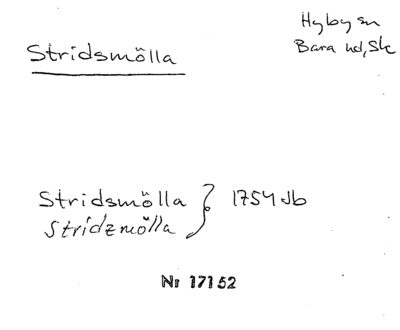 Hyby sn
Bara hd, Sk
Stridsmölla
Stridsmölla } 1754 Jb
Stridzmölla
Nr 17152